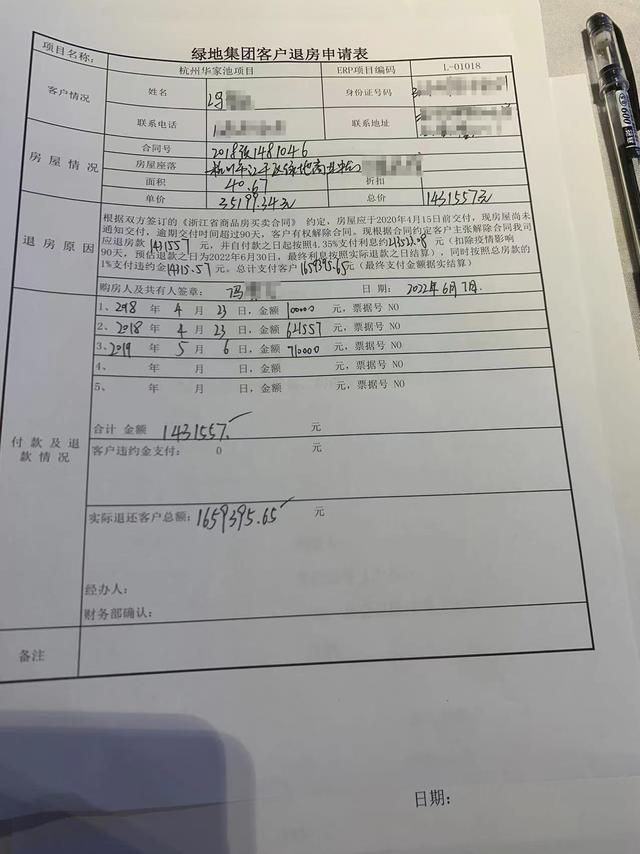 绿地集团客户退房申请表
项目名称: 杭州华家池项目 ERP项目编码 L-01018
客户情况 姓名 身份证号码
联系电话 联系地址
房屋情况 合同号 2018预1481046
房屋座落
面积 40.67 折扣
单价 35199.34元 总价 1431557元
退房原因
根据双方签订的《浙江省商品房买卖合同》约定,房屋应于2020年4月15日前交付,现房屋尚未
通知交付,逾期交付时间超过90天,客户有权解除合同。现根据合同约定客户主张解除合同我司
应退房款 1431557 元,并自付款之日起按照4.35%支付利息约 元(扣除疫情影响
90天,预估退款之日为2022年6月30日,最终利息按照实际退款之日结算),同时按照总房款的
1%支付违约金 元。总计支付客户 1659395.65 元(最终支付金额据实结算)
购房人及共有人签章: 冯 日 期: 2022年6月7日
付款及退款情况
1、2018 年 4 月 23 日,金额 100000 元,票据号 NO
2、2018 年 4 月 23 日,金额 621557 元,票据号 NO
3、2019 年 5 月 6 日,金额 710000 元,票据号 NO
4、 年 月 日,金额 元,票据号 NO
5、 年 月 日,金额 元,票据号 NO
合计 金额 1431557. 元
客户违约金支付: 0 元
实际退还客户总额: 1659395.65 元
经办人:
财务部确认:
备注
日期: